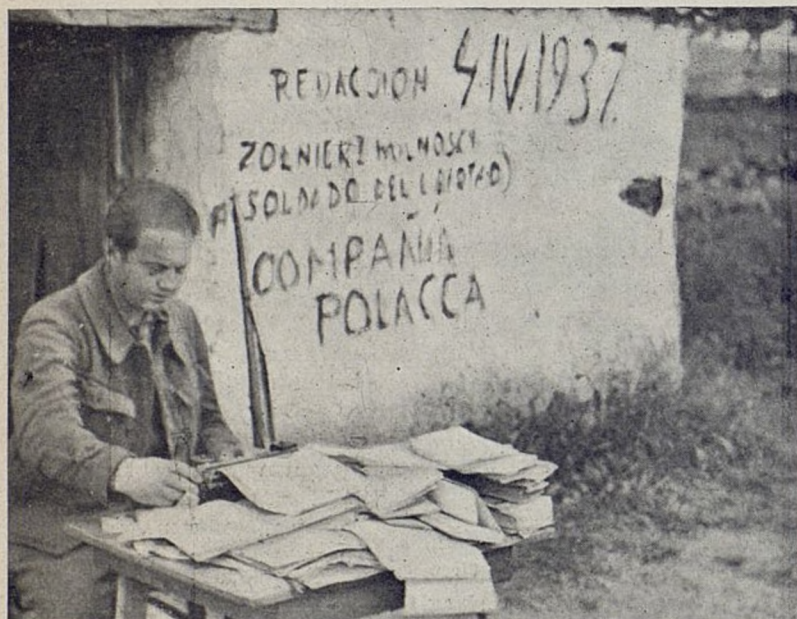 REDACCION 4.IV.1937.
ŻOŁNIERZ WOLNOŚCI
SOLDADO DEL LIBERTAD)
COMPAÑIA
POLACCA